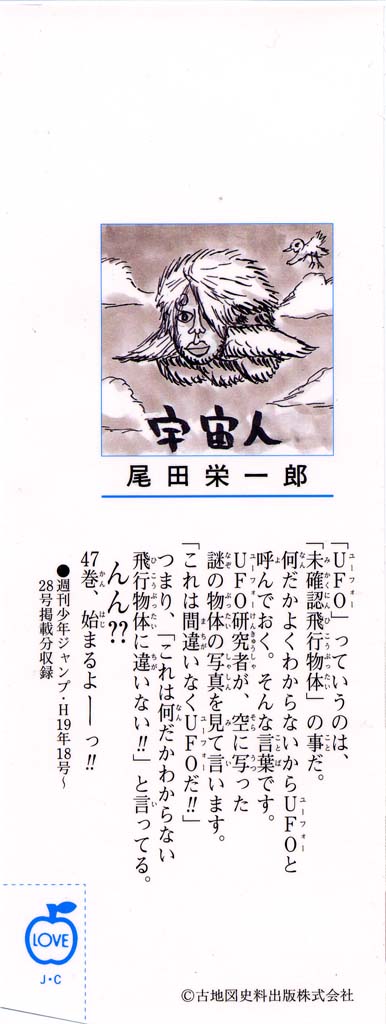 宇宙人
尾田栄一郎
「UFO」っていうのは、
「未確認飛行物体」の事だ。
何だかよくわからないからUFOと
呼んでおく。そんな言葉です。
UFO研究者が、空に写った
謎の物体の写真を見て言います。
「これは間違いなくUFOだ!!」
つまり、「これは何だかわからない
飛行物体に違いない!!」と言ってる。
んん??
47巻、始まるよーーっ!!
●週刊少年ジャンプ・H19年18号〜
28号掲載分収録
LOVE
J・C
©古地図史料出版株式会社